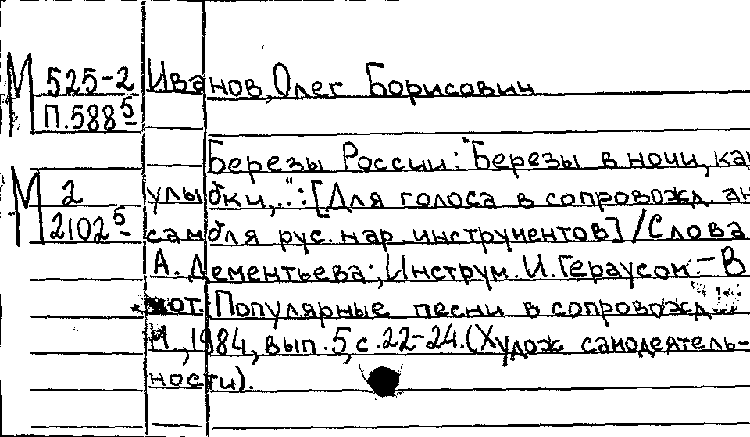 М 525-2 Иванов, Олег Борисович
П.588⁵
Березы России: "Березы в ночи, ка
М 2 улыбки,..": [Для голоса в сопровожд. ан
2102⁵ самбля рус. нар. инструментов] / Слова
А. Дементьева; Инструм. И. Гераусом. – В
нот. Популярные песни в сопровожд...
М., 1984, вып. 5, с. 22-24. (Худож самодеятель-
ности).